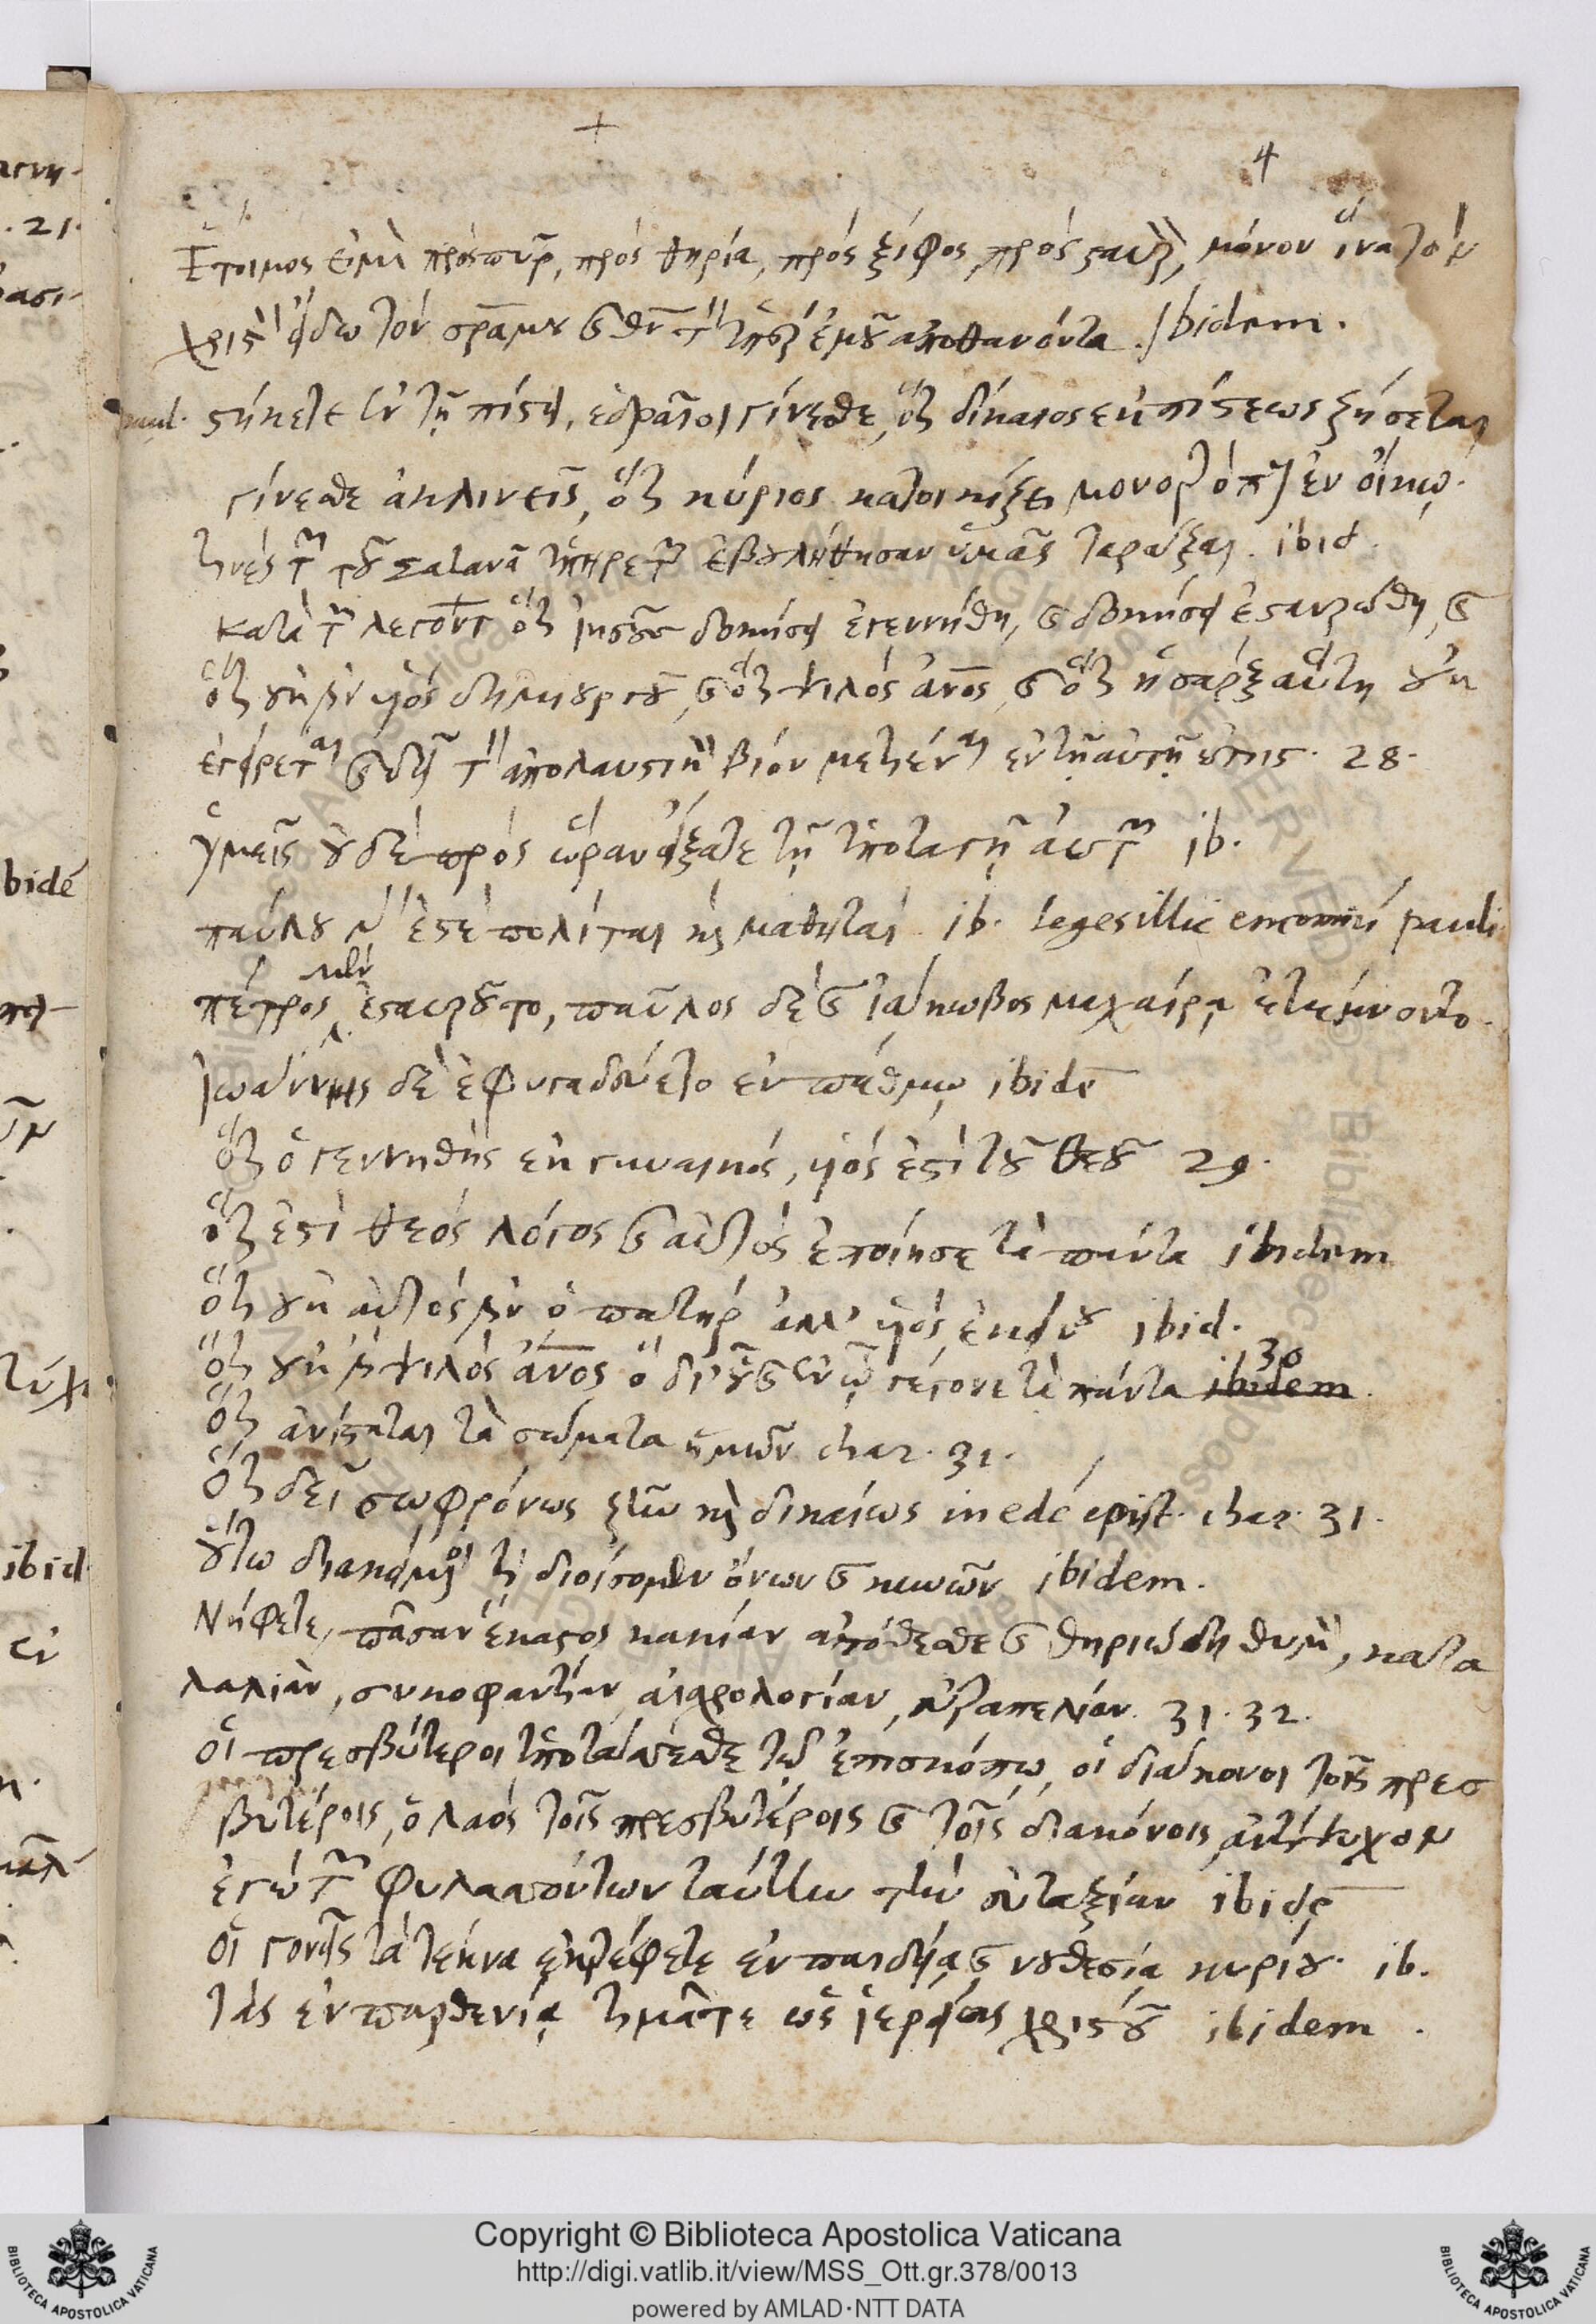 +
4
Ἕτοιμός εἰμι πρὸς πῦρ, πρὸς θηρία, πρὸς ξίφος, πρὸς σταυρὸν, μόνον ἵνα τὸν
χριστὸν ἴδω τὸν σρα μου καὶ θν τὸν ὑπὲρ ἐμοῦ ἀποθανόντα. Ibidem.
στήκετε ἐν τῇ πίστει, ἑδραῖοι γίνεσθε, ὅτι δίκαιος ἐκ πίστεως ζήσεται
γίνεσθε ἀκλινεῖς, ὅτι κύριος κατοικίζει μονοτρόπους ἐν οἴκῳ.
τινές τῶν τοῦ Σατανᾶ ὑπηρετῶν ἐβουλήθησαν ὑμᾶς ταράξαι. ibid.
κατὰ τῶν λεγόντων ὅτι ἰησοῦς δοκήσει ἐγεννήθη, καὶ δοκήσει ἐσταυρώθη, καὶ
ὅτι οὐκ ἦν υἱὸς δημιουργοῦ, καὶ ὅτι ψιλὸς ἀνος, καὶ ὅτι ἡ σὰρξ αὕτη οὐκ
ἐγείρεται καὶ δεῖ τὸν ἀπολαυστικὸν βίον μετιέναι ἐν τῇ αὐτῇ 28.
ὑμεῖς οὐδὲ πρὸς ὥραν εἴξατε τῇ ὑποταγῇ αὐτῶν ib.
παύλου ἐστὲ πολῖται καὶ μαθηταί. ib. leges illic encomiū pauli
πέτρος μὲν ἐσταυροῦτο, παῦλος δὲ καὶ ἰάκωβος μαχαίρᾳ ἐτέμνοντο.
ἰωάννης δὲ ἐφυγαδεύετο ἐν πάθμῳ ibidē
ὅτι ὁ γεννηθεὶς ἐκ γυναικός, υἱός ἐστι τοῦ θεοῦ 29.
ὅτι ἐστὶ θεὸς λόγος καὶ αὐτὸς ἐποίησε τὰ πάντα ibidem
ὅτι οὐκ αὐτός ἦν ὁ πατὴρ ἀλλ' υἱὸς ἐκείνου ibid.
ὅτι οὐκ ἦν ψιλὸς ἄνος ὁ δι' οὗ καὶ ἐν ᾧ γέγονε τὰ πάντα ibidem 30
ὅτι ἀνίσταται τὰ σώματα ἡμῶν char. 31.
ὅτι δεῖ σωφρόνως ζῆν καὶ δικαίως in edē epist. char. 31.
οὕτω διακείμενοι τί διοίσομεν ὄνων καὶ κυνῶν ibidem.
Νήφετε, πᾶσαν ἕκαστος κακίαν ἀπόθεσθε καὶ θηριώδη θυμὸν, κατα
λαλιὰν, συκοφαντίαν, αἰσχρολογίαν, εὐτραπελίαν. 31. 32.
οἱ πρεσβύτεροι ὑποτάσσεσθε τῷ ἐπισκόπῳ, οἱ διάκονοι τοῖς πρεσ
βυτέροις, ὁ λαὸς τοῖς πρεσβυτέροις καὶ τοῖς διακόνοις, ἀντίψυχον
ἐγὼ τῶν φυλασσόντων ταύτην τὴν εὐταξίαν ibidē
οἱ γονεῖς τὰ τέκνα ἐκτρέφετε ἐν παιδείᾳ καὶ νουθεσίᾳ κυρίου. ib.
τὰς ἐν παρθενίᾳ τιμᾶτε ὡς ἱερείας χριστοῦ ibidem.
Copyright © Biblioteca Apostolica Vaticana
http://digi.vatlib.it/view/MSS_Ott.gr.378/0013
powered by AMLAD·NTT DATA